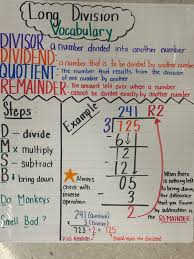 Long Division
Vocabulary
DIVISOR: a number divided into another number
DIVIDEND: a number that is to be divided by another number
QUOTIENT: the number that results from the division
of one number by another
REMAINDER: the amount left over when a number
cannot be divided exactly by another number
Steps
D - divide
M x multiply
S - subtract
B↓ bring down
Do Monkeys
Smell Bad?
Example
241 R2
3 725
6
12
12
05
3
2
Always
check with
inverse
operation
When there
is nothing left
to bring down,
the difference
that you found
by subtraction is
the REMAINDER
241 (Quotient)